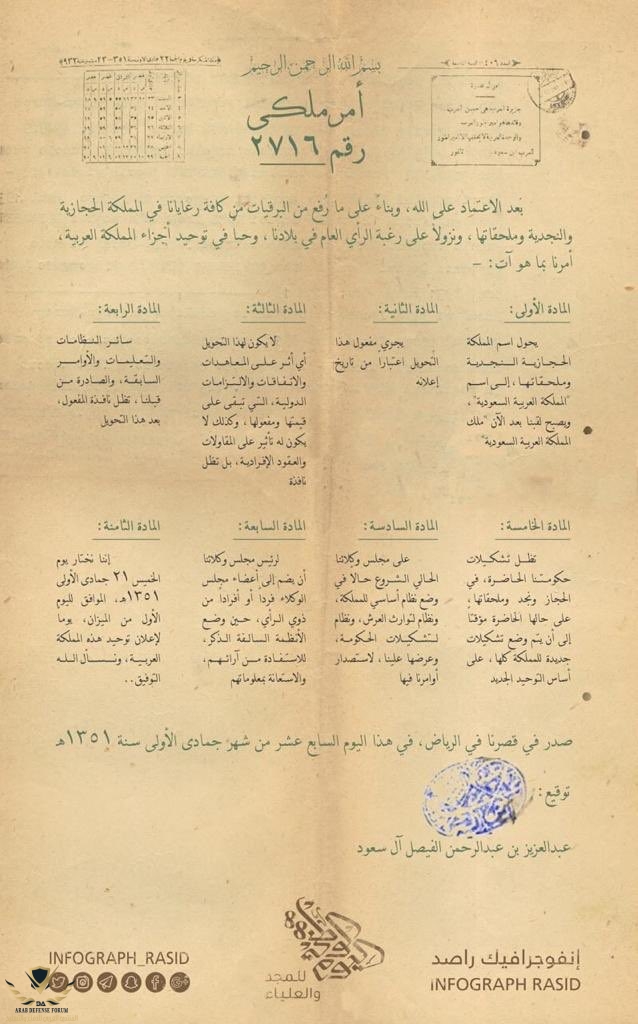 بسم الله الرحمن الرحيم
أمر ملكي
رقم ٢٧١٦
بعد الاعتماد على الله، وبناءً على ما رُفع من البرقيات من كافة رعايانا في المملكة الحجازية
والنجدية وملحقاتها، ونزولاً على رغبة الرأي العام في بلادنا، وحباً في توحيد أجزاء المملكة العربية،
أمرنا بما هو آت: –
المادة الأولى:
يحول اسم المملكة
الحجازية النجدية
وملحقاتها، إلى اسم
"المملكة العربية السعودية"،
ويصبح لقبنا بعد الآن "ملك
المملكة العربية السعودية"
المادة الثانية:
يجري مفعول هذا
التحويل اعتباراً من تاريخ
إعلانه
المادة الثالثة:
لا يكون لهذا التحويل
أي أثر على المعاهدات
والاتفاقات والالتزامات
الدولية، التي تبقى على
قيمتها ومفعولها، وكذلك لا
يكون له تأثير على المقاولات
والعقود الإفرادية، بل تظل
نافذة
المادة الرابعة:
سائر النظامات
والتعليمات والأوامر
السابقة، والصادرة من
قبلنا، تظل نافذة المفعول،
بعد هذا التحويل
المادة الخامسة:
تظل تشكيلات
حكومتنا الحاضرة، في
الحجاز ونجد وملحقاتها،
على حالها الحاضرة مؤقتاً
إلى أن يتم وضع تشكيلات
جديدة للمملكة كلها، على
أساس التوحيد الجديد
المادة السادسة:
على مجلس وكلائنا
الحالي الشروع حالا في
وضع نظام أساسي للمملكة،
ونظام لتوارث العرش، ونظام
لتشكيلات الحكومة،
وعرضها علينا، لاستصدار
أوامرنا فيها
المادة السابعة:
لرئيس مجلس وكلائنا
أن يضم إلى أعضاء مجلس
الوكلاء فرداً أو أفراداً من
ذوي الرأي، حين وضع
الأنظمة السالفة الذكر،
للاستفادة من آرائهم،
والاستعانة بمعلوماتهم
المادة الثامنة:
إننا نختار يوم
الخميس ٢١ جمادى الأولى
١٣٥١هـ، الموافق لليوم
الأول من الميزان، يوما
لإعلان توحيد هذه المملكة
العربية، ونسأل الله
التوفيق..
صدر في قصرنا في الرياض، في هذا اليوم السابع عشر من شهر جمادى الأولى سنة ١٣٥١هـ
توقيع:
عبدالعزيز بن عبدالرحمن الفيصل آل سعود
إنفوجرافيك راصد
INFOGRAPH RASID
للمجد
والعلياء
INFOGRAPH_RASID
ARAB DEFENSE FORUM